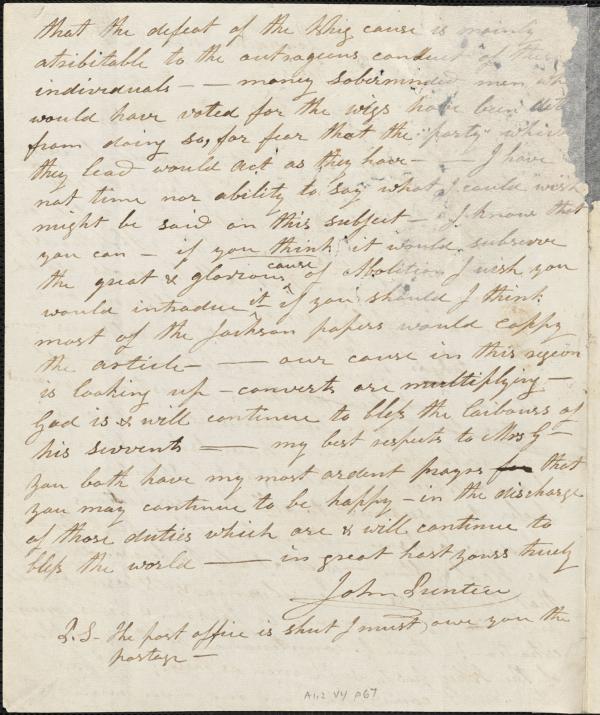 that the defeat of the Whig cause is mainly
atributable to the outrageous conduct of these
individuals — — many soberminded men
would have voted for the wigs have been
from doing so, for fear that the "party" which
they lead would act as they have — — I have
not time nor ability to say what I could wish
might be said on this subject — I know that
you can — if you think it would subserve
the great & glorious cause of Abolition I wish you
would introduce it if you should I think
most of the Jackson papers would coppy
the article — — our cause in this region
is looking up — converts are multiplying —
God is & will continue to bless the labours of
his servents — — my best respects to Mrs G —
you both have my most ardent prayrs for that
you may continue to be happy — in the discharge
of those duties which are & will continue to
bless the world — — in great hast yours truely
John Prentice
P.S. The post office is shut I must owe you the
postage —
A1.2 V4 p67